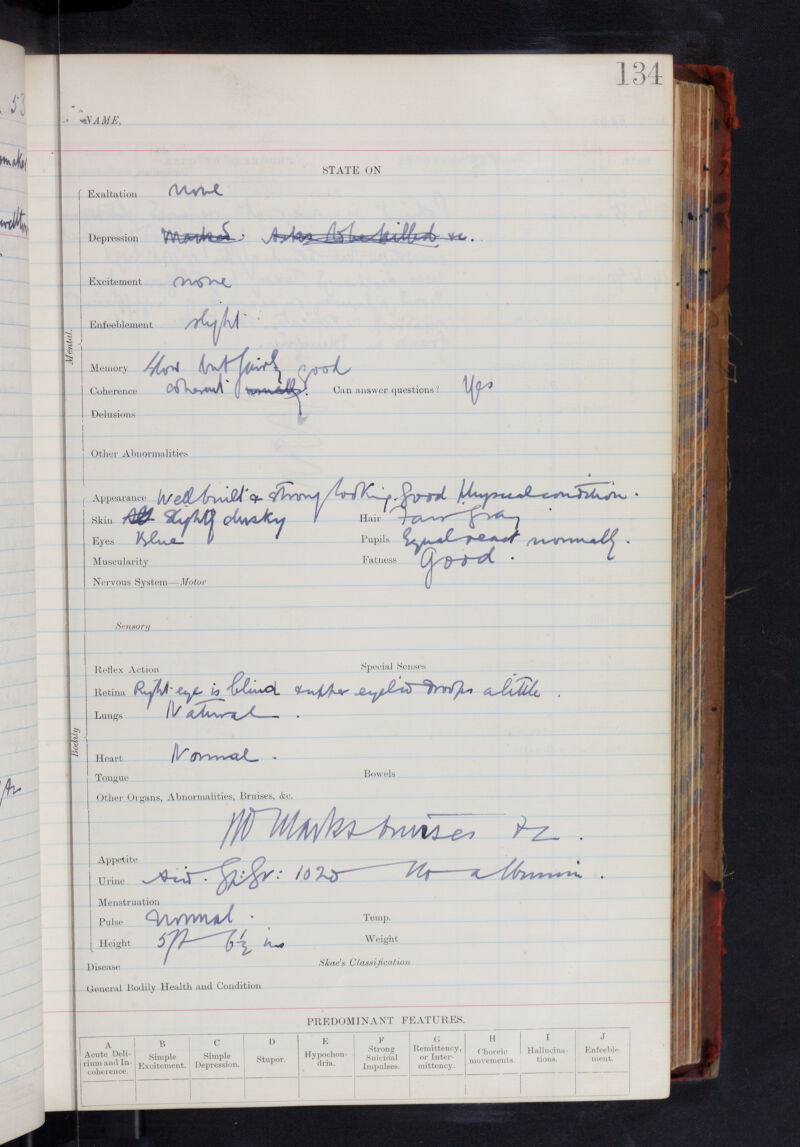 134
NAME,
STATE ON
Exaltation none
Depression Marked. Asks to be killed &c.
Excitement none
Enfeeblement slight
Mental.
Memory Slow but fairly good
Coherence coherent usually. Can answer questions? Yes
Delusions
Other Abnormalities
Appearance Well built & strong looking. Good Physical condition.
Skin Slightly dusky Hair Fair gray
Eyes Blue Pupils Equal react normally.
Muscularity Fatness Good.
Nervous System—Motor
Sensory
Reflex Action Special Senses
Retina Right eye is blind & upper eyelid droops a little.
Lungs Natural.
Bodily
Heart Normal.
Tongue Bowels
Other Organs, Abnormalities, Bruises, &c.
No Marks bruises &c.
Appetite
Urine Acid. Sp: Gr: 1020 No albumin.
Menstruation
Pulse Normal. Temp.
Height 5ft 6½ ins Weight
Disease Skae's Classification
General Bodily Health and Condition
PREDOMINANT FEATURES.
A B C D E F G H I J
Acute Delirium and Incoherence. Simple Excitement. Simple Depression. Stupor. Hypochondria. Strong Suicidal Impulses. Remittency, or Intermittency. Choreic movements. Hallucinations. Enfeeblement.